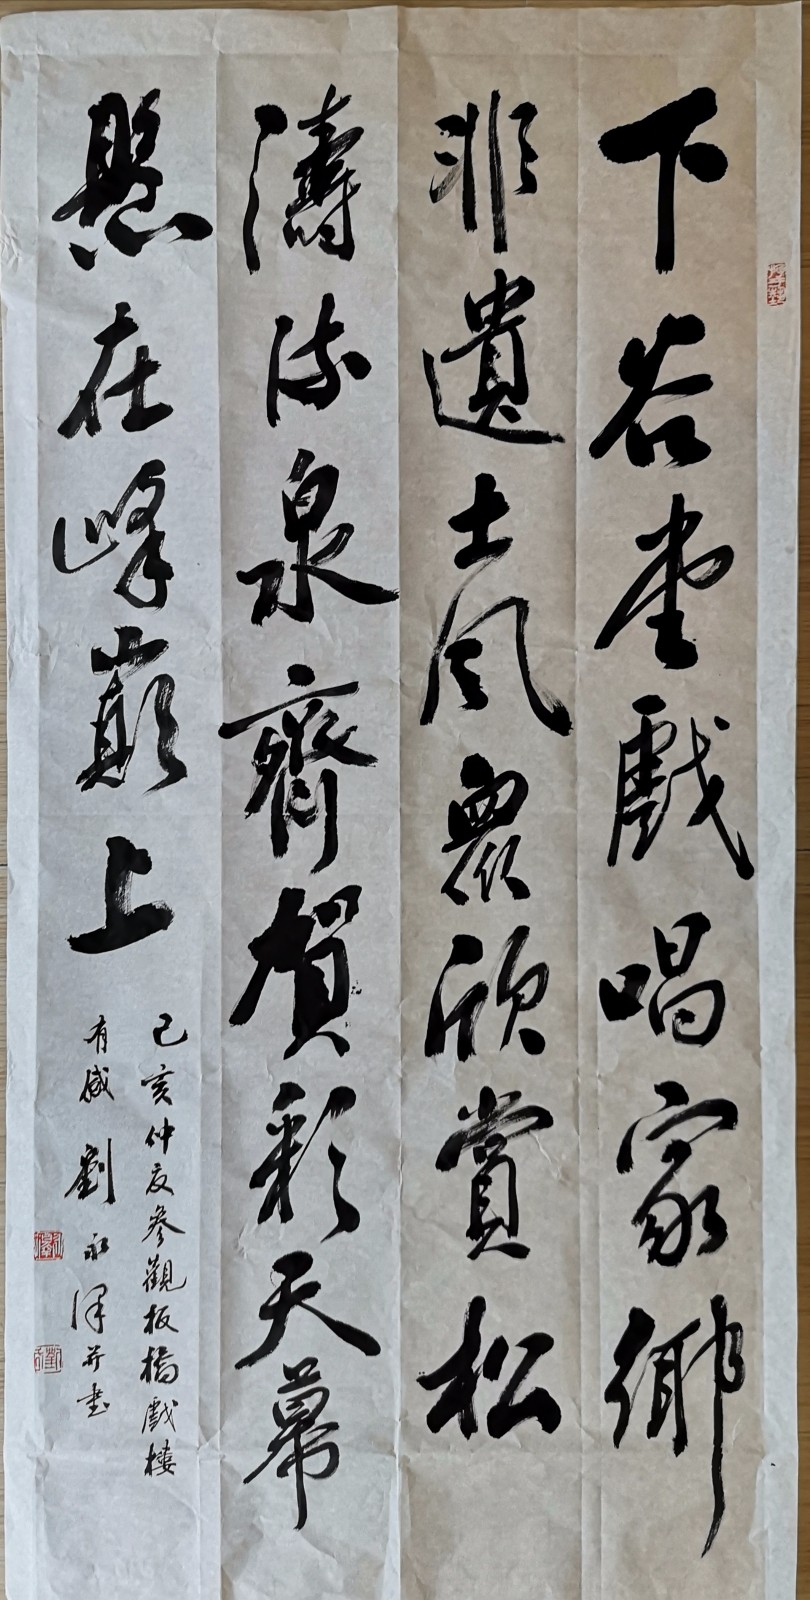 下谷堂戲唱家鄉
非遺土風眾欣賞松
濤流泉齊賀彩天幕
懸在峰巔上
己亥仲夏參觀板橋戲樓
有感劉永澤并書